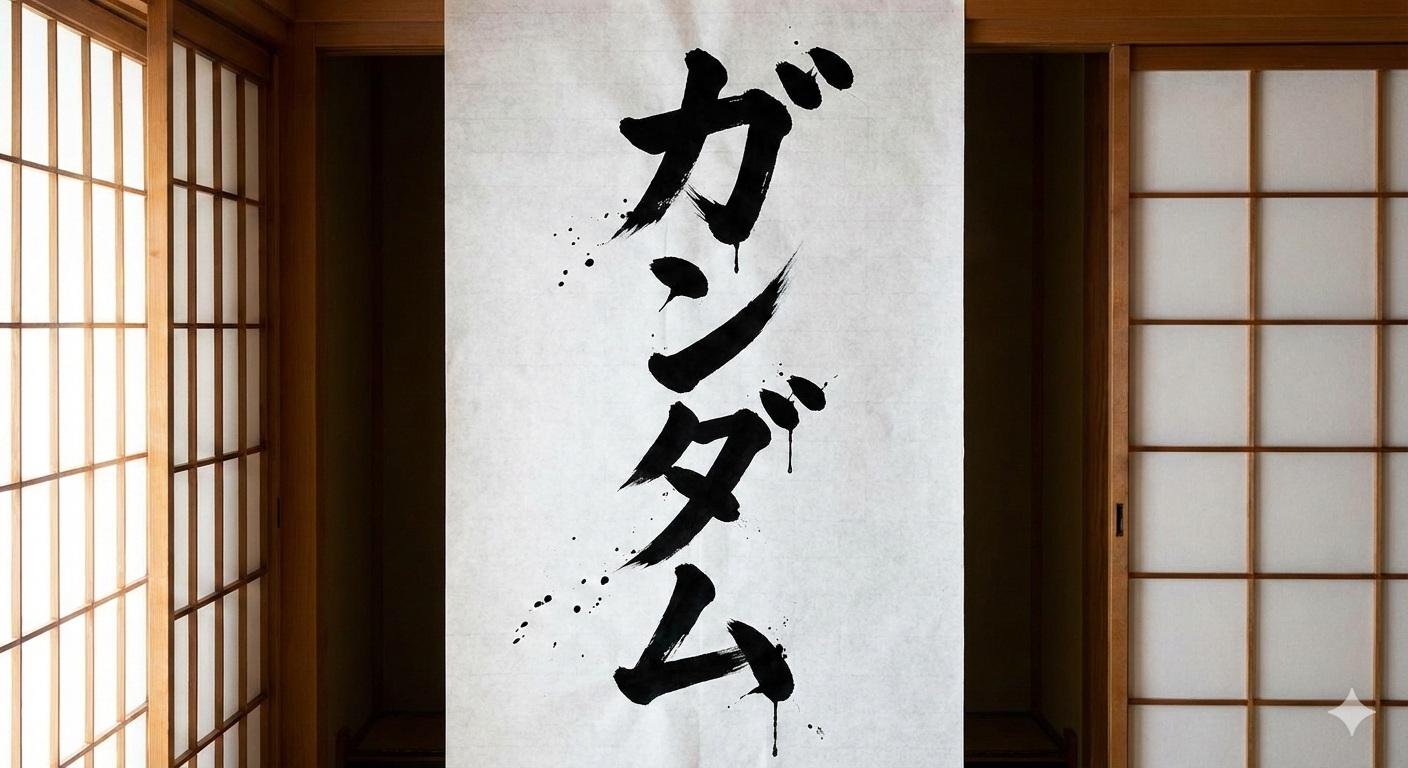 ガンダム